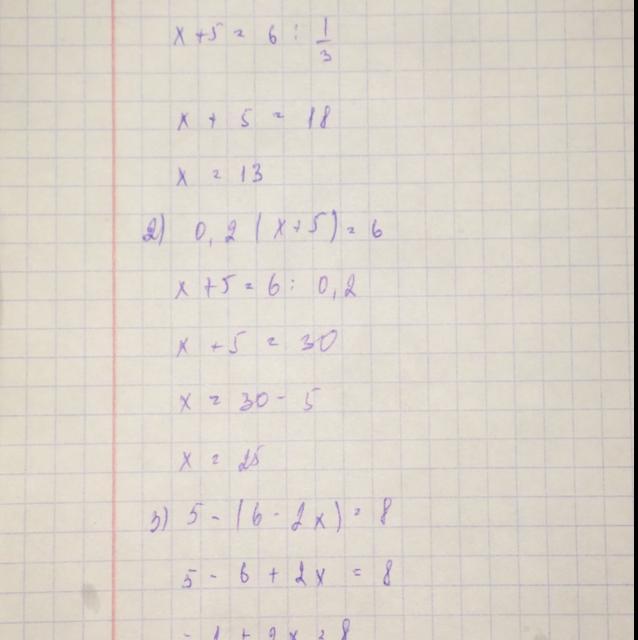 x + 5 = 6 : 1/3
x + 5 = 18
x = 13
2) 0,2 (x+5) = 6
x + 5 = 6 : 0,2
x + 5 = 30
x = 30 - 5
x = 25
3) 5 - (6 - 2x) = 8
5 - 6 + 2x = 8
- 1 + 2x = 8